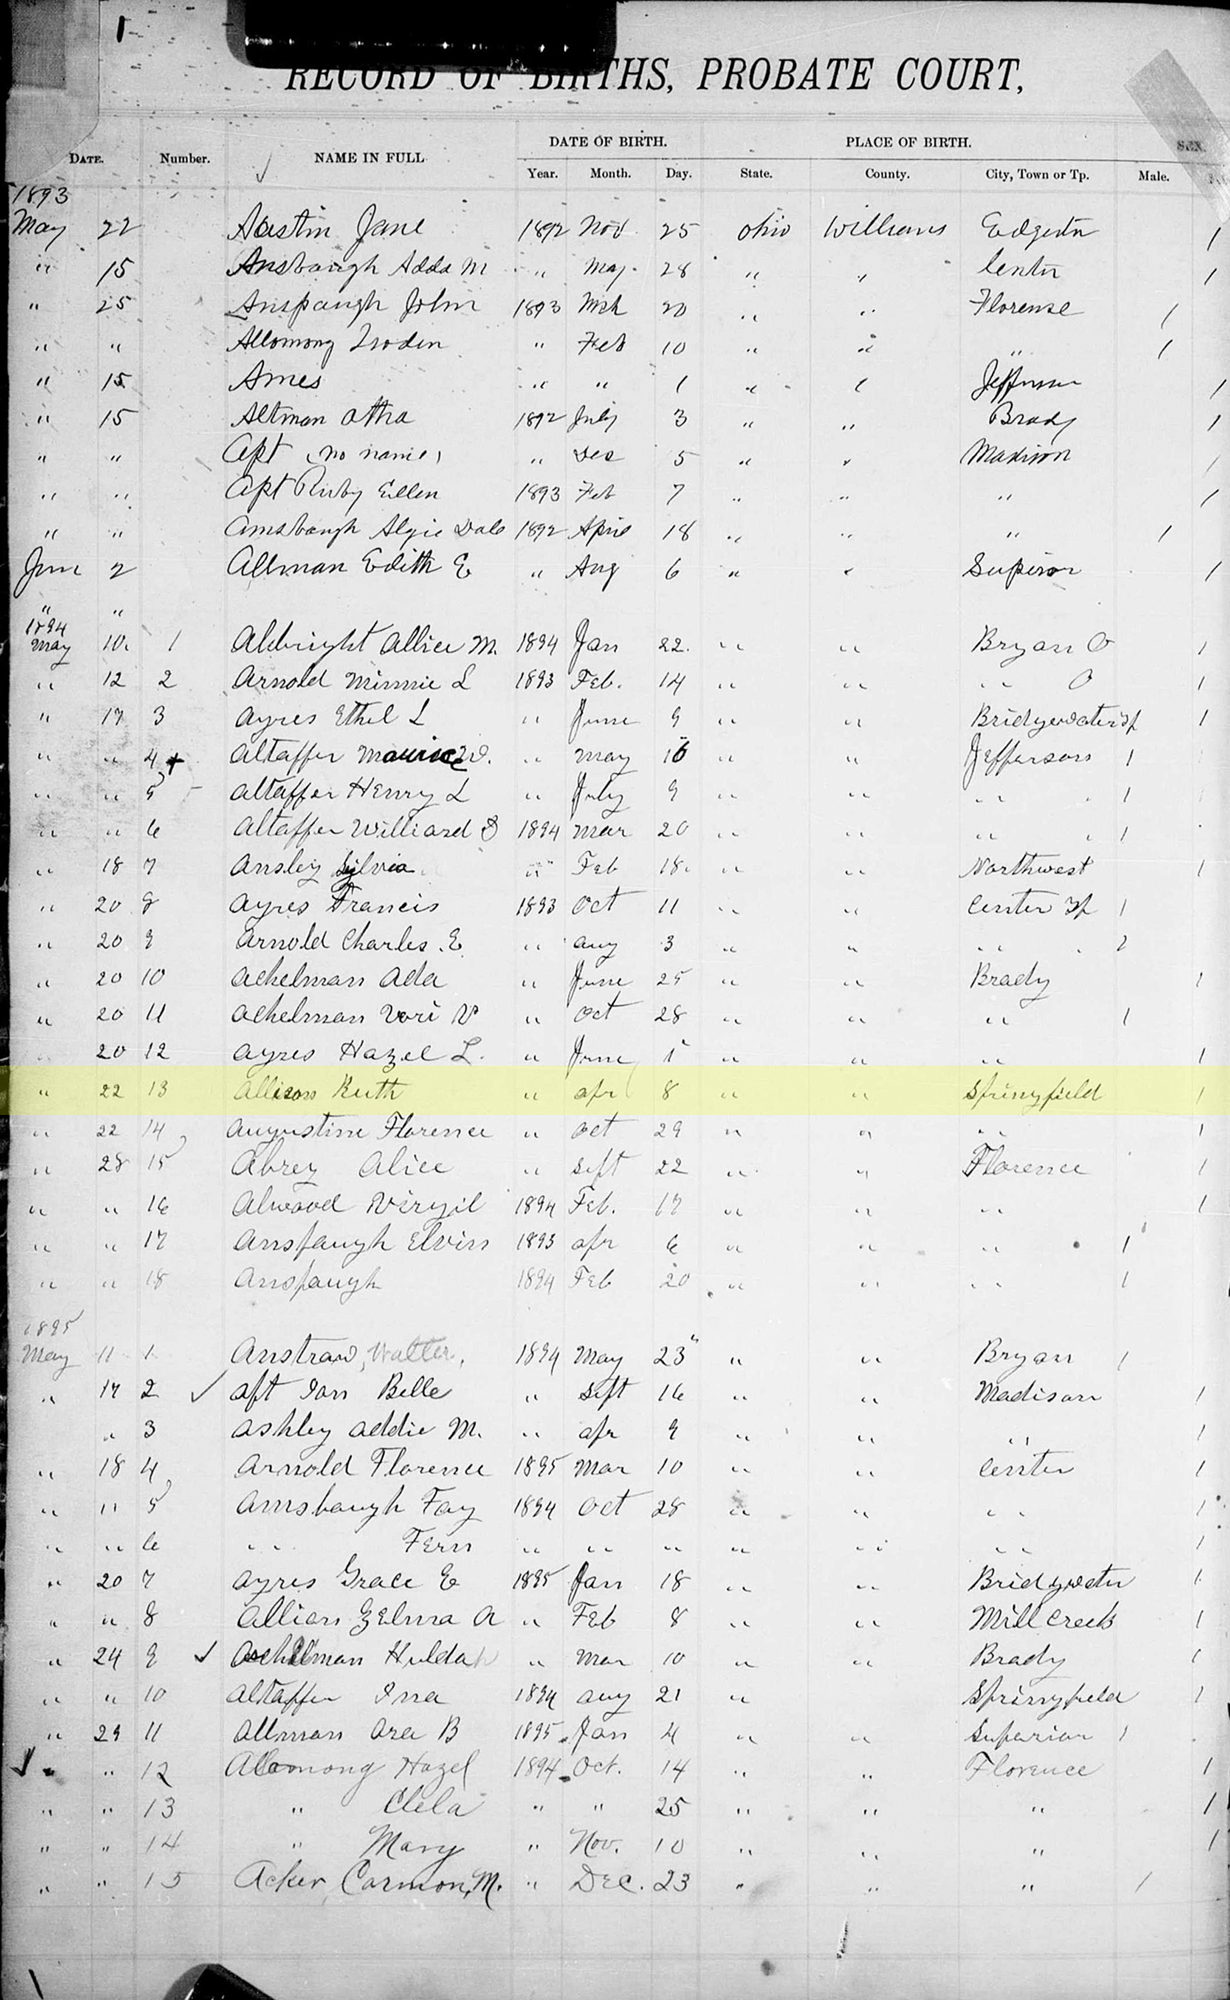 1
RECORD OF BIRTHS, PROBATE COURT,
DATE OF BIRTH. PLACE OF BIRTH. SEX.
DATE. Number. NAME IN FULL Year. Month. Day. State. County. City, Town or Tp. Male.
1893
May 22 Austin Jane 1892 Nov 25 Ohio Williams Edgerton 1
" 15 Ansbaugh Adda M " May 28 " " Center 1
" 25 Anspaugh John 1893 Mch 20 " " Florense 1
" " Allomong " Feb 10 " " " 1
" 15 Ames " " 1 " " Jefferson 1
" 15 Altman Otha 1892 July 3 " " Brady 1
" " Apt (no name) " Dec 5 " " Madison 1
" " Apt Ruby Ellen 1893 Feb 7 " " " 1
" " Amsbaugh Algie Dale 1892 April 18 " " " 1
June 2 Allman Edith E " Aug 6 " " Superior 1
" "
1894
May 10. 1 Albright Allice M. 1894 Jan 22. " " Bryan O 1
" 12 2 Arnold Minnie L 1893 Feb. 14 " " " O 1
" 17 3 Ayres Ethel L " June 9 " " Bridgewater Tp 1
" " 4 + Altaffer Maurice W. " May 16 " " Jefferson 1
" " 5 Altaffer Henry L " July 9 " " " 1
" " 6 Altaffer Williard D 1894 Mar 20 " " " 1
" 18 7 Ansley Sylvia " Feb 18. " " Northwest 1
" 20 8 Ayres Francis 1893 Oct 11 " " Center Tp 1
" 20 9 Arnold Charles E. " Aug 3 " " " 1
" 20 10 Achelman Ada " June 25 " " Brady 1
" 20 11 Achelman Vori V " Oct 28 " " " 1
20 12 Ayres Hazel L. " June 1 " " " 1
" 22 13 Allison Ruth " Apr 8 " " Springfield 1
" 22 14 Augustine Florence " Oct 29 " " " 1
" 28 15 Abrey Alice " Sept 22 " " Florence 1
" " 16 Alwood Virgil 1894 Feb. 17 " " " 1
" " 17 Anspaugh Elvin 1893 Apr 6 " " " 1
" " 18 Anspaugh 1894 Feb 20 " " " 1
1895
May 11 1 Anstraw, Walter, 1894 May 23 " " Bryan 1
" 17 2 ✓ Apt Ion Belle " Sept 16 " " Madison 1
" 3 Ashley Addie M. " Apr 9 " " " 1
" 18 4 Arnold Florence 1895 Mar 10 " " Center 1
" " 5 Amsbaugh Fay 1894 Oct 28 " " " 1
" " 6 " Fern " " " " " " 1
" 20 7 Ayres Grace E 1895 Jan 18 " " Bridgwater 1
" " 8 Allion Zelma A " Feb 8 " " Mill Creek 1
" 24 9 ✓ Achelman Huldah " Mar 10 " " Brady 1
" " 10 Altaffer Ina 1894 Aug 21 " Springfield 1
" 29 11 Allman Ora B 1895 Jan 4 " " Superior 1
✓ " " 12 Allomong Hazel 1894 Oct. 14 " " Florence 1
" " 13 " Clela " " 25 " " " 1
" " 14 " Mary " Nov. 10 " " " 1
" " 15 Acker, Carmon, M. " Dec. 23 " " " 1